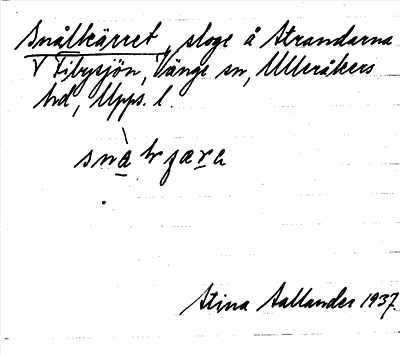 Snålkärret, sloge å Strandarna
v Fibysjön, Vänge sn, Ulleråkers
hd, Upps. l.
Stina Sallander 1937.